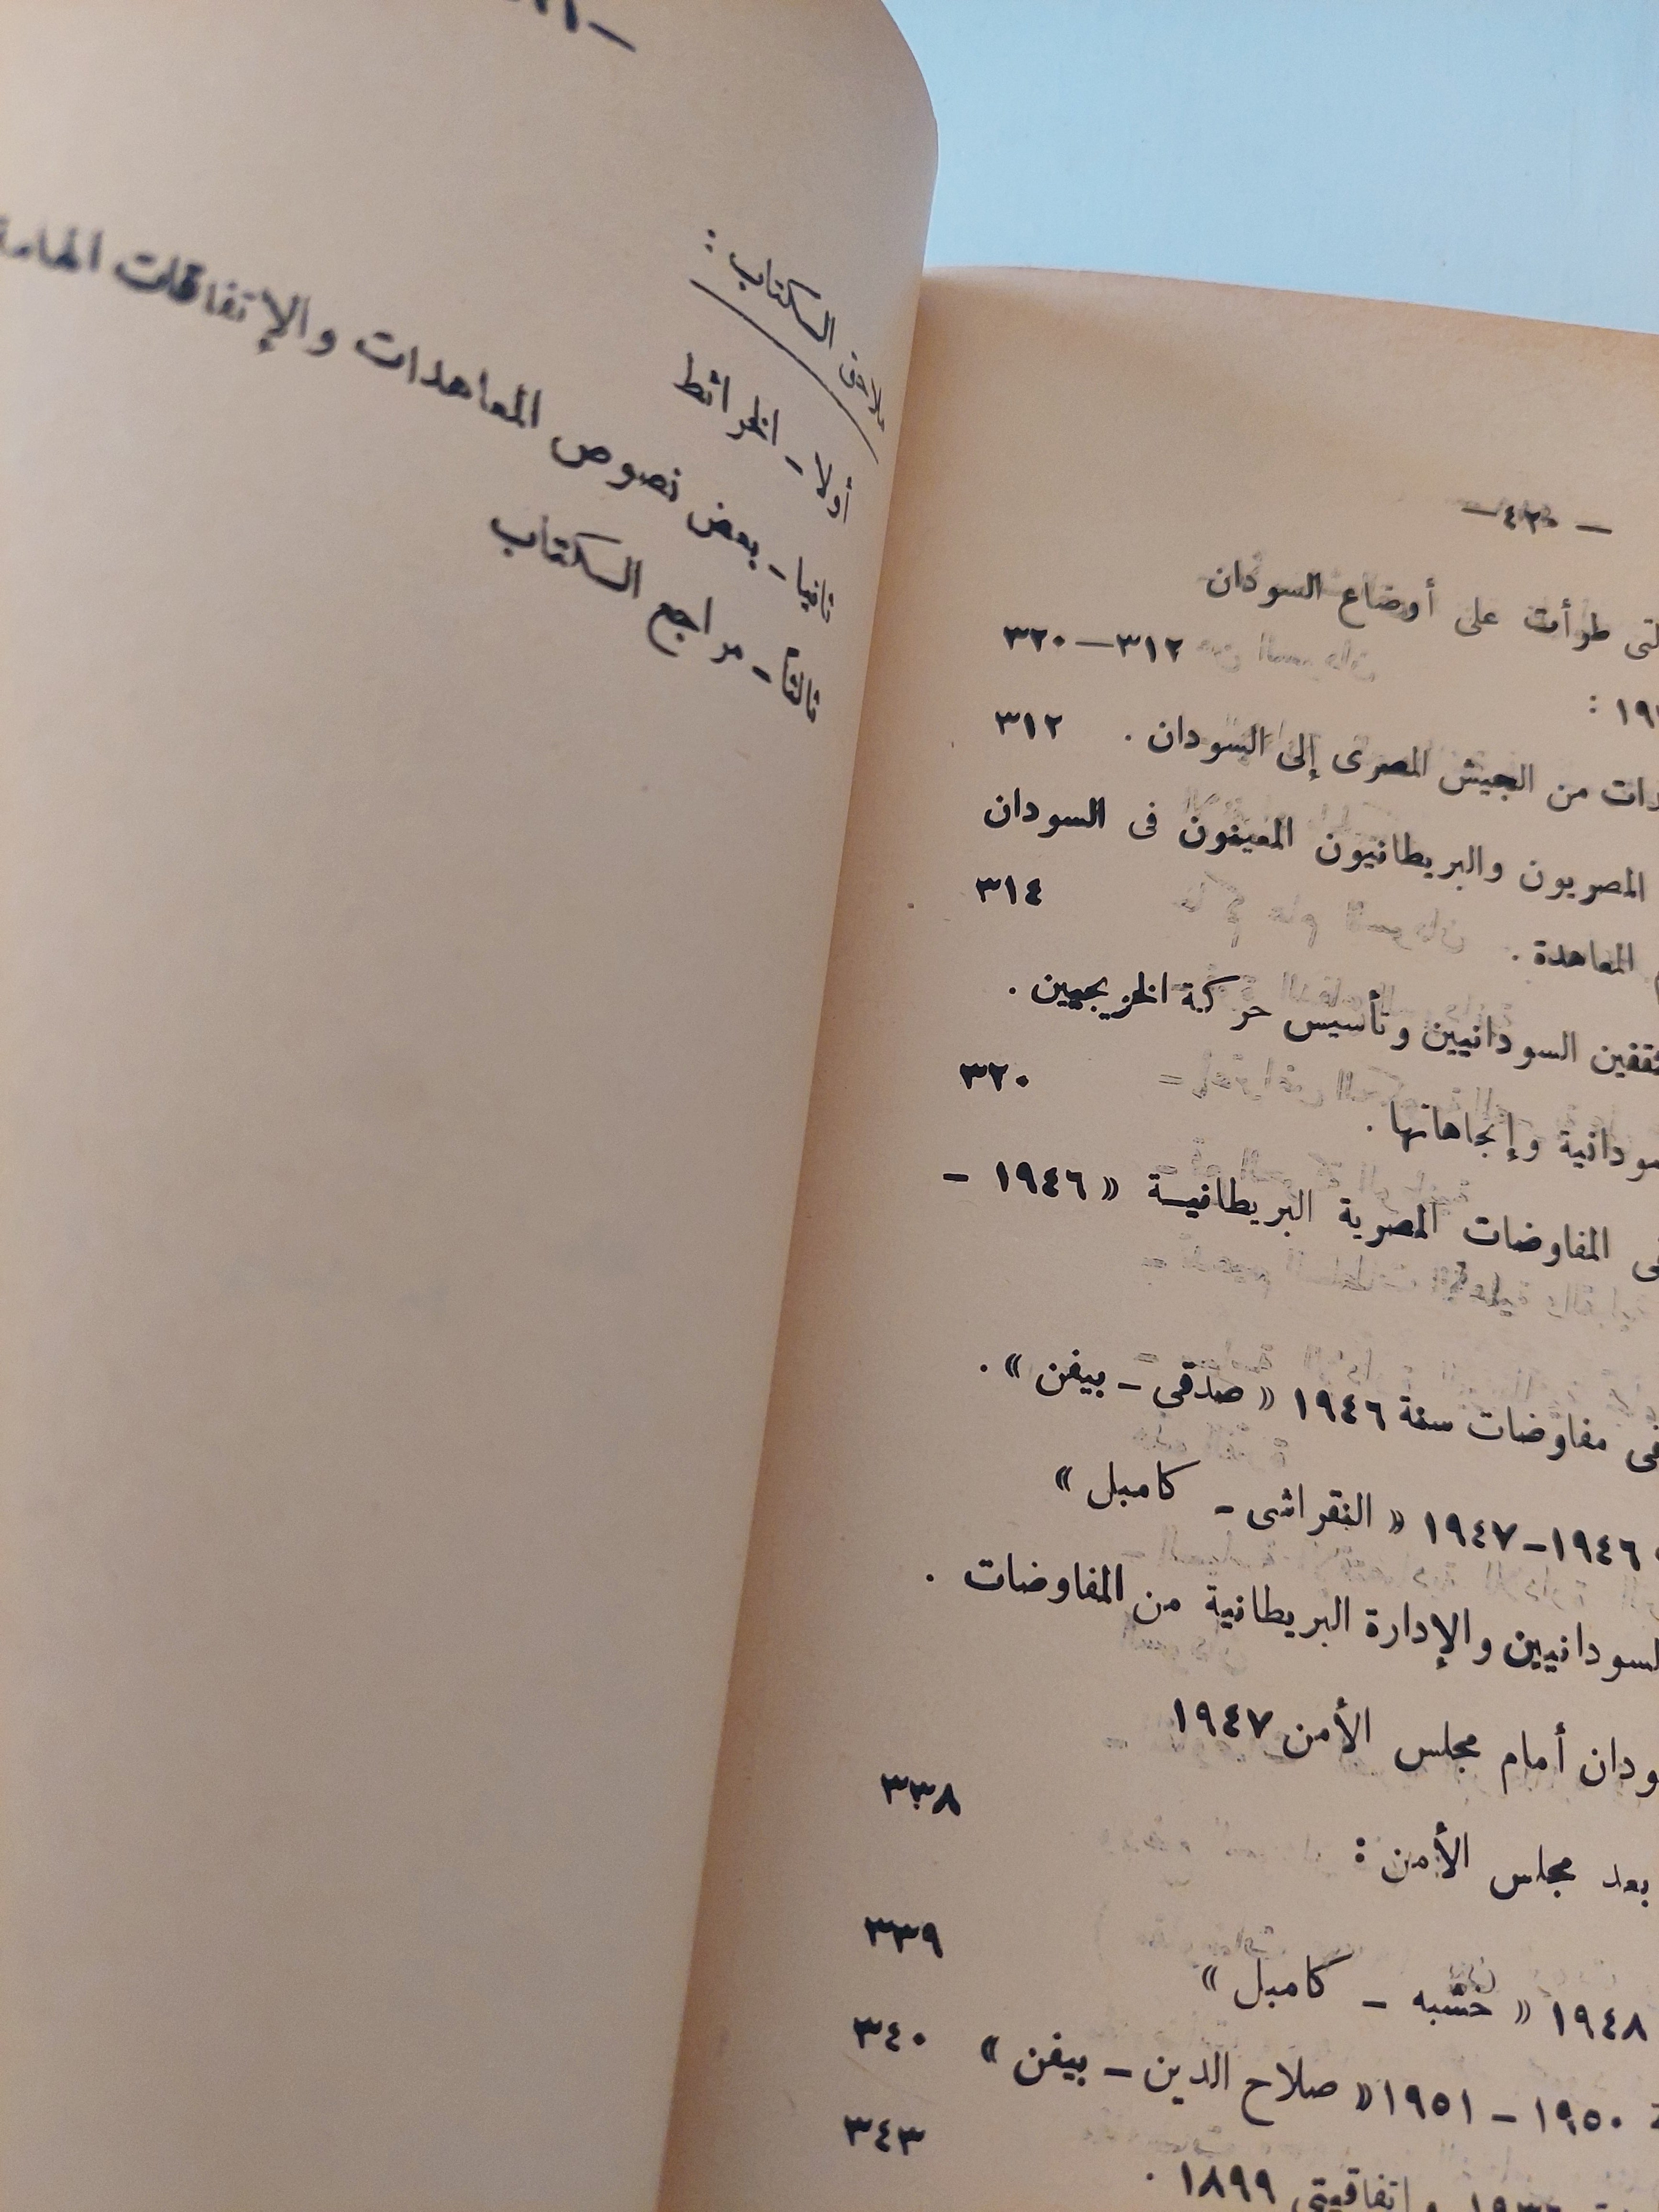 ملاحق الكتاب :
أولا ـ الخرائط
ثانيا ـ بعض نصوص المعاهدات والإتفاقات الهامة
ثالثاً ـ مراجع الكتاب
— ٤٢٠ —
طرأت على أوضاع السودان
٣١٢—٣٢٠
من الجيش المصرى إلى السودان . ٣١٢
المصريون والبريطانيون المعينون فى السودان
المعاهدة . ٣١٤
السودانيين وتأسيس حركة الخريجيين .
وإتجاهاتها . ٣٢٠
المفاوضات المصرية البريطانية « ١٩٤٦ -
فى مفاوضات سنة ١٩٤٦ « صدقى ـ بيفن » .
١٩٤٦-١٩٤٧ « النقراشى - كامبل »
والإدارة البريطانية من المفاوضات .
أمام مجلس الأمن ١٩٤٧
٣٣٨
بعد مجلس الأمن :
٣٣٩
١٩٤٨ « خشبه - كامبل »
١٩٥٠ - ١٩٥١ « صلاح الدين - بيفن » ٣٤٠
٣٤٣
واتفاقيتى ١٨٩٩ .